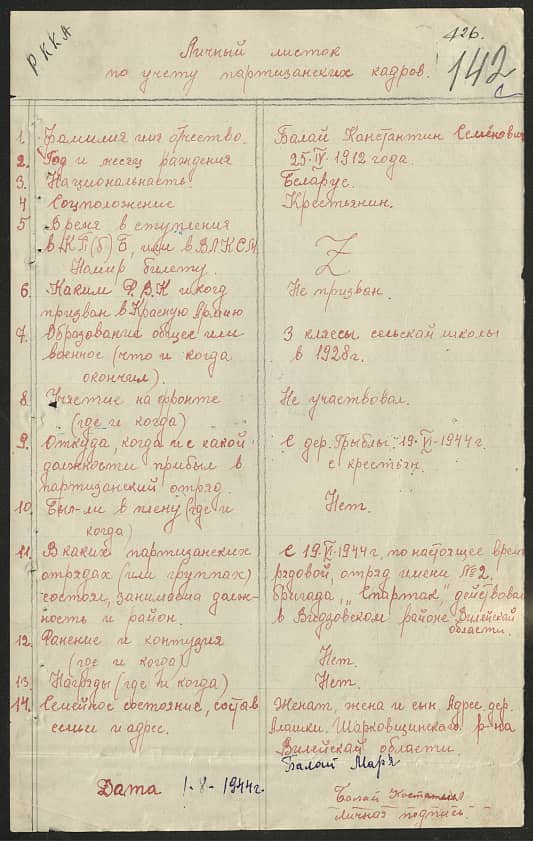 РККА
426.
142
Личный листок
по учету партизанских кадров.
1. Фамилия имя отчество. Балай Канстантин Семёнович
2. Год и месяц раждения 25·IV·1912 года.
3. Национальнасть. Беларус.
4 Соцположение Крестьянин.
5 Время вступления
в КП(б)Б, или в ВЛКСМ. Z
Намир билету.
6. Каким Р.В.К и когд Не призван.
призван в Красную Армию
7. Образование общее или 3 классы сельскай школы
военное (что и когда в 1928г.
окончил).
8. Участие на фронте Не участвовал.
(где и когда)
9. Откуда, когда и с какой С дер. Грыблы 19·VI-1944г.
должности прибыл в с крестьян.
партизанский отряд.
10. Был-ли в плену (где и Нет.
когда)
11. В каких партизанских С 19·VI-1944г, по настоящее время
отрядах (или группах) рядовой, отряд имени №2,
состоял, занимаема долж- бригада „Спартак" действовал
ность и район. в Видзовском районе Вилейскай
области.
12. Ранение и контузия Нет.
(где и когда)
13. Награды (где и когда) Нет.
14. Семейное состояние, состав Женат, жена и сын. Адрес дер.
семьи и адрес. Алашки. Шарковщинскаго р-на
Вилейскай области.
Балай Мар'я
Дата 1-8-1944г.
Балай
личная подпись.